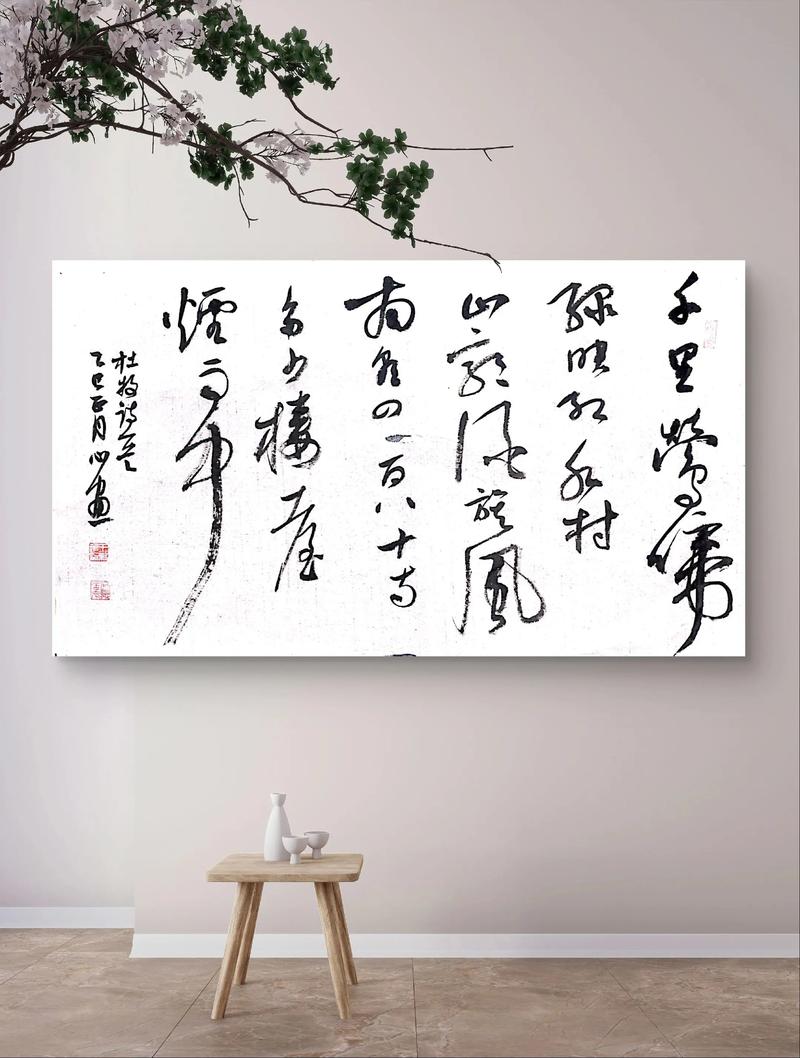 千里鶯啼
綠映紅水村
山郭酒旗風
南朝四百八十寺
多少樓臺
煙雨中
杜牧詩一首
乙巳正月心画